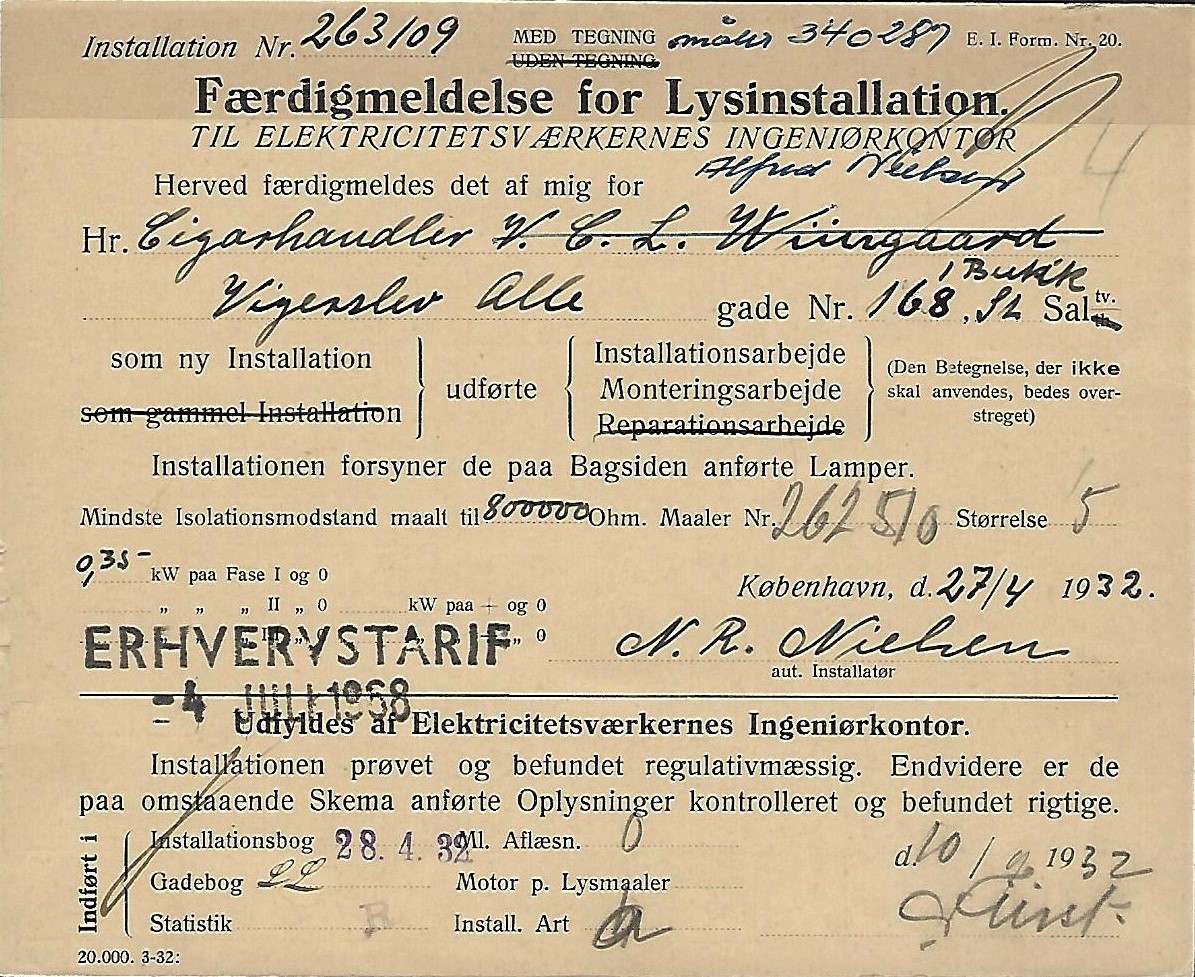 Installation Nr. 263109 MED TEGNING måler 340287 E. I. Form. Nr. 20.
UDEN TEGNING
Færdigmeldelse for Lysinstallation.
TIL ELEKTRICITETSVÆRKERNES INGENIØRKONTOR
4
Alfred Nielsen
Herved færdigmeldes det af mig for
Hr. Cigarhandler V. C. L. Wiingaard
1 Butik
Vigerslev Alle gade Nr. 168, St Sal tv.
th.
som ny Installation
som gammel Installation
udførte
Installationsarbejde
Monteringsarbejde
Reparationsarbejde
(Den Betegnelse, der ikke
skal anvendes, bedes over-
streget)
Installationen forsyner de paa Bagsiden anførte Lamper.
Mindste Isolationsmodstand maalt til 800000 Ohm. Maaler Nr. 262510 Størrelse 5
0,35- kW paa Fase I og 0
„ „ „ II „ 0 kW paa + og 0
„ III „ 0 „ „ - „ 0
København, d. 27/4 1932.
ERHVERVSTARIF
N. R. Nielsen
aut. Installatør
-4 JULI 1968
Udfyldes af Elektricitetsværkernes Ingeniørkontor.
Installationen prøvet og befundet regulativmæssig. Endvidere er de
paa omstaaende Skema anførte Oplysninger kontrolleret og befundet rigtige.
Indført i
Installationsbog 28. 4. 32 Ml. Aflæsn. 0
Gadebog LL Motor p. Lysmaaler
Statistik R Install. Art a
d. 10/ 1932
20.000. 3-32: